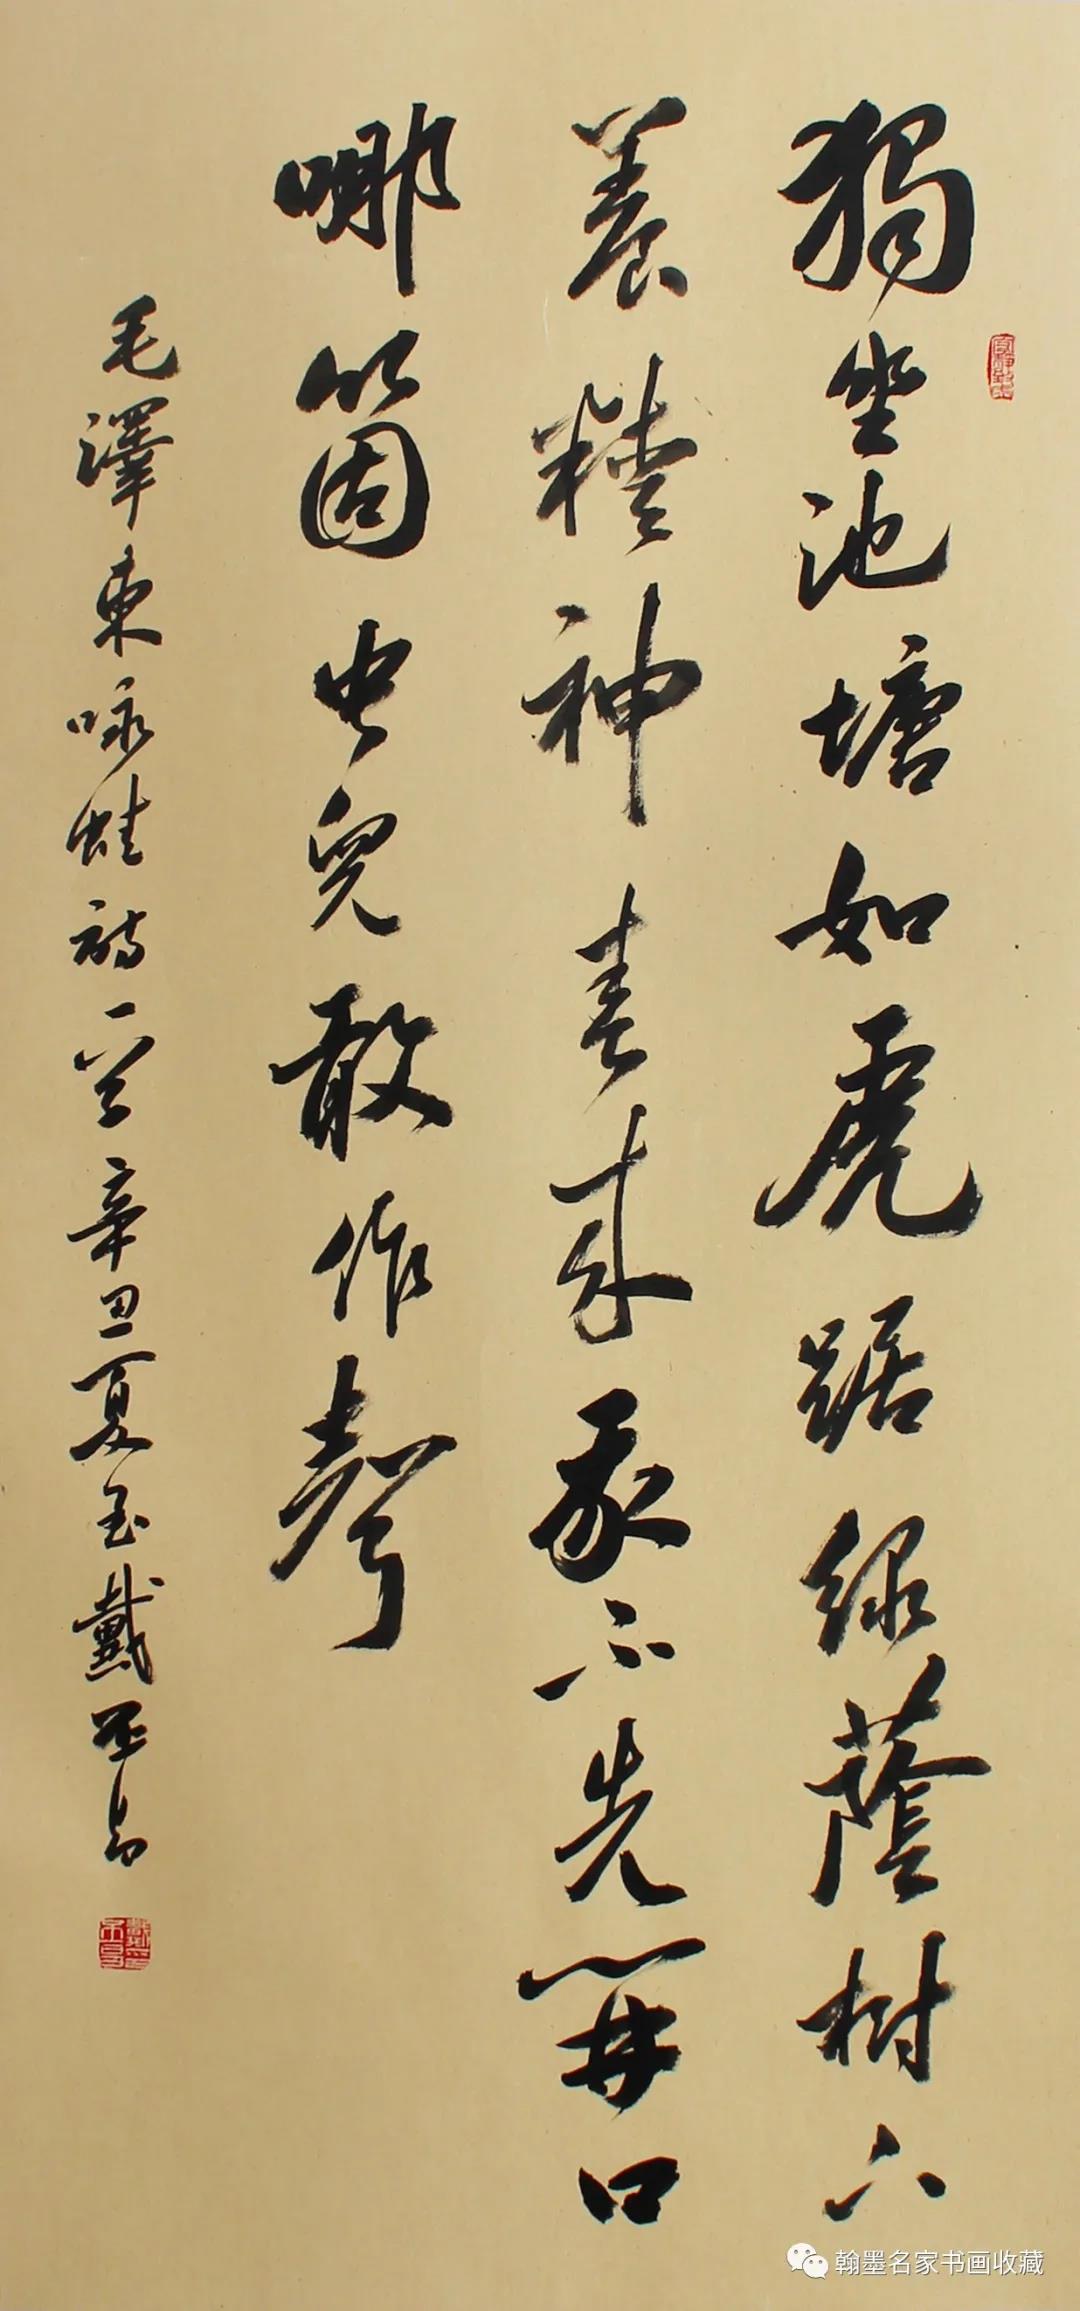 獨坐池塘如虎踞绿蔭樹下
養精神春來我不先開口
哪箇虫兒敢作聲
毛澤東咏蛙詩一首辛丑夏至戴
翰墨名家书画收藏